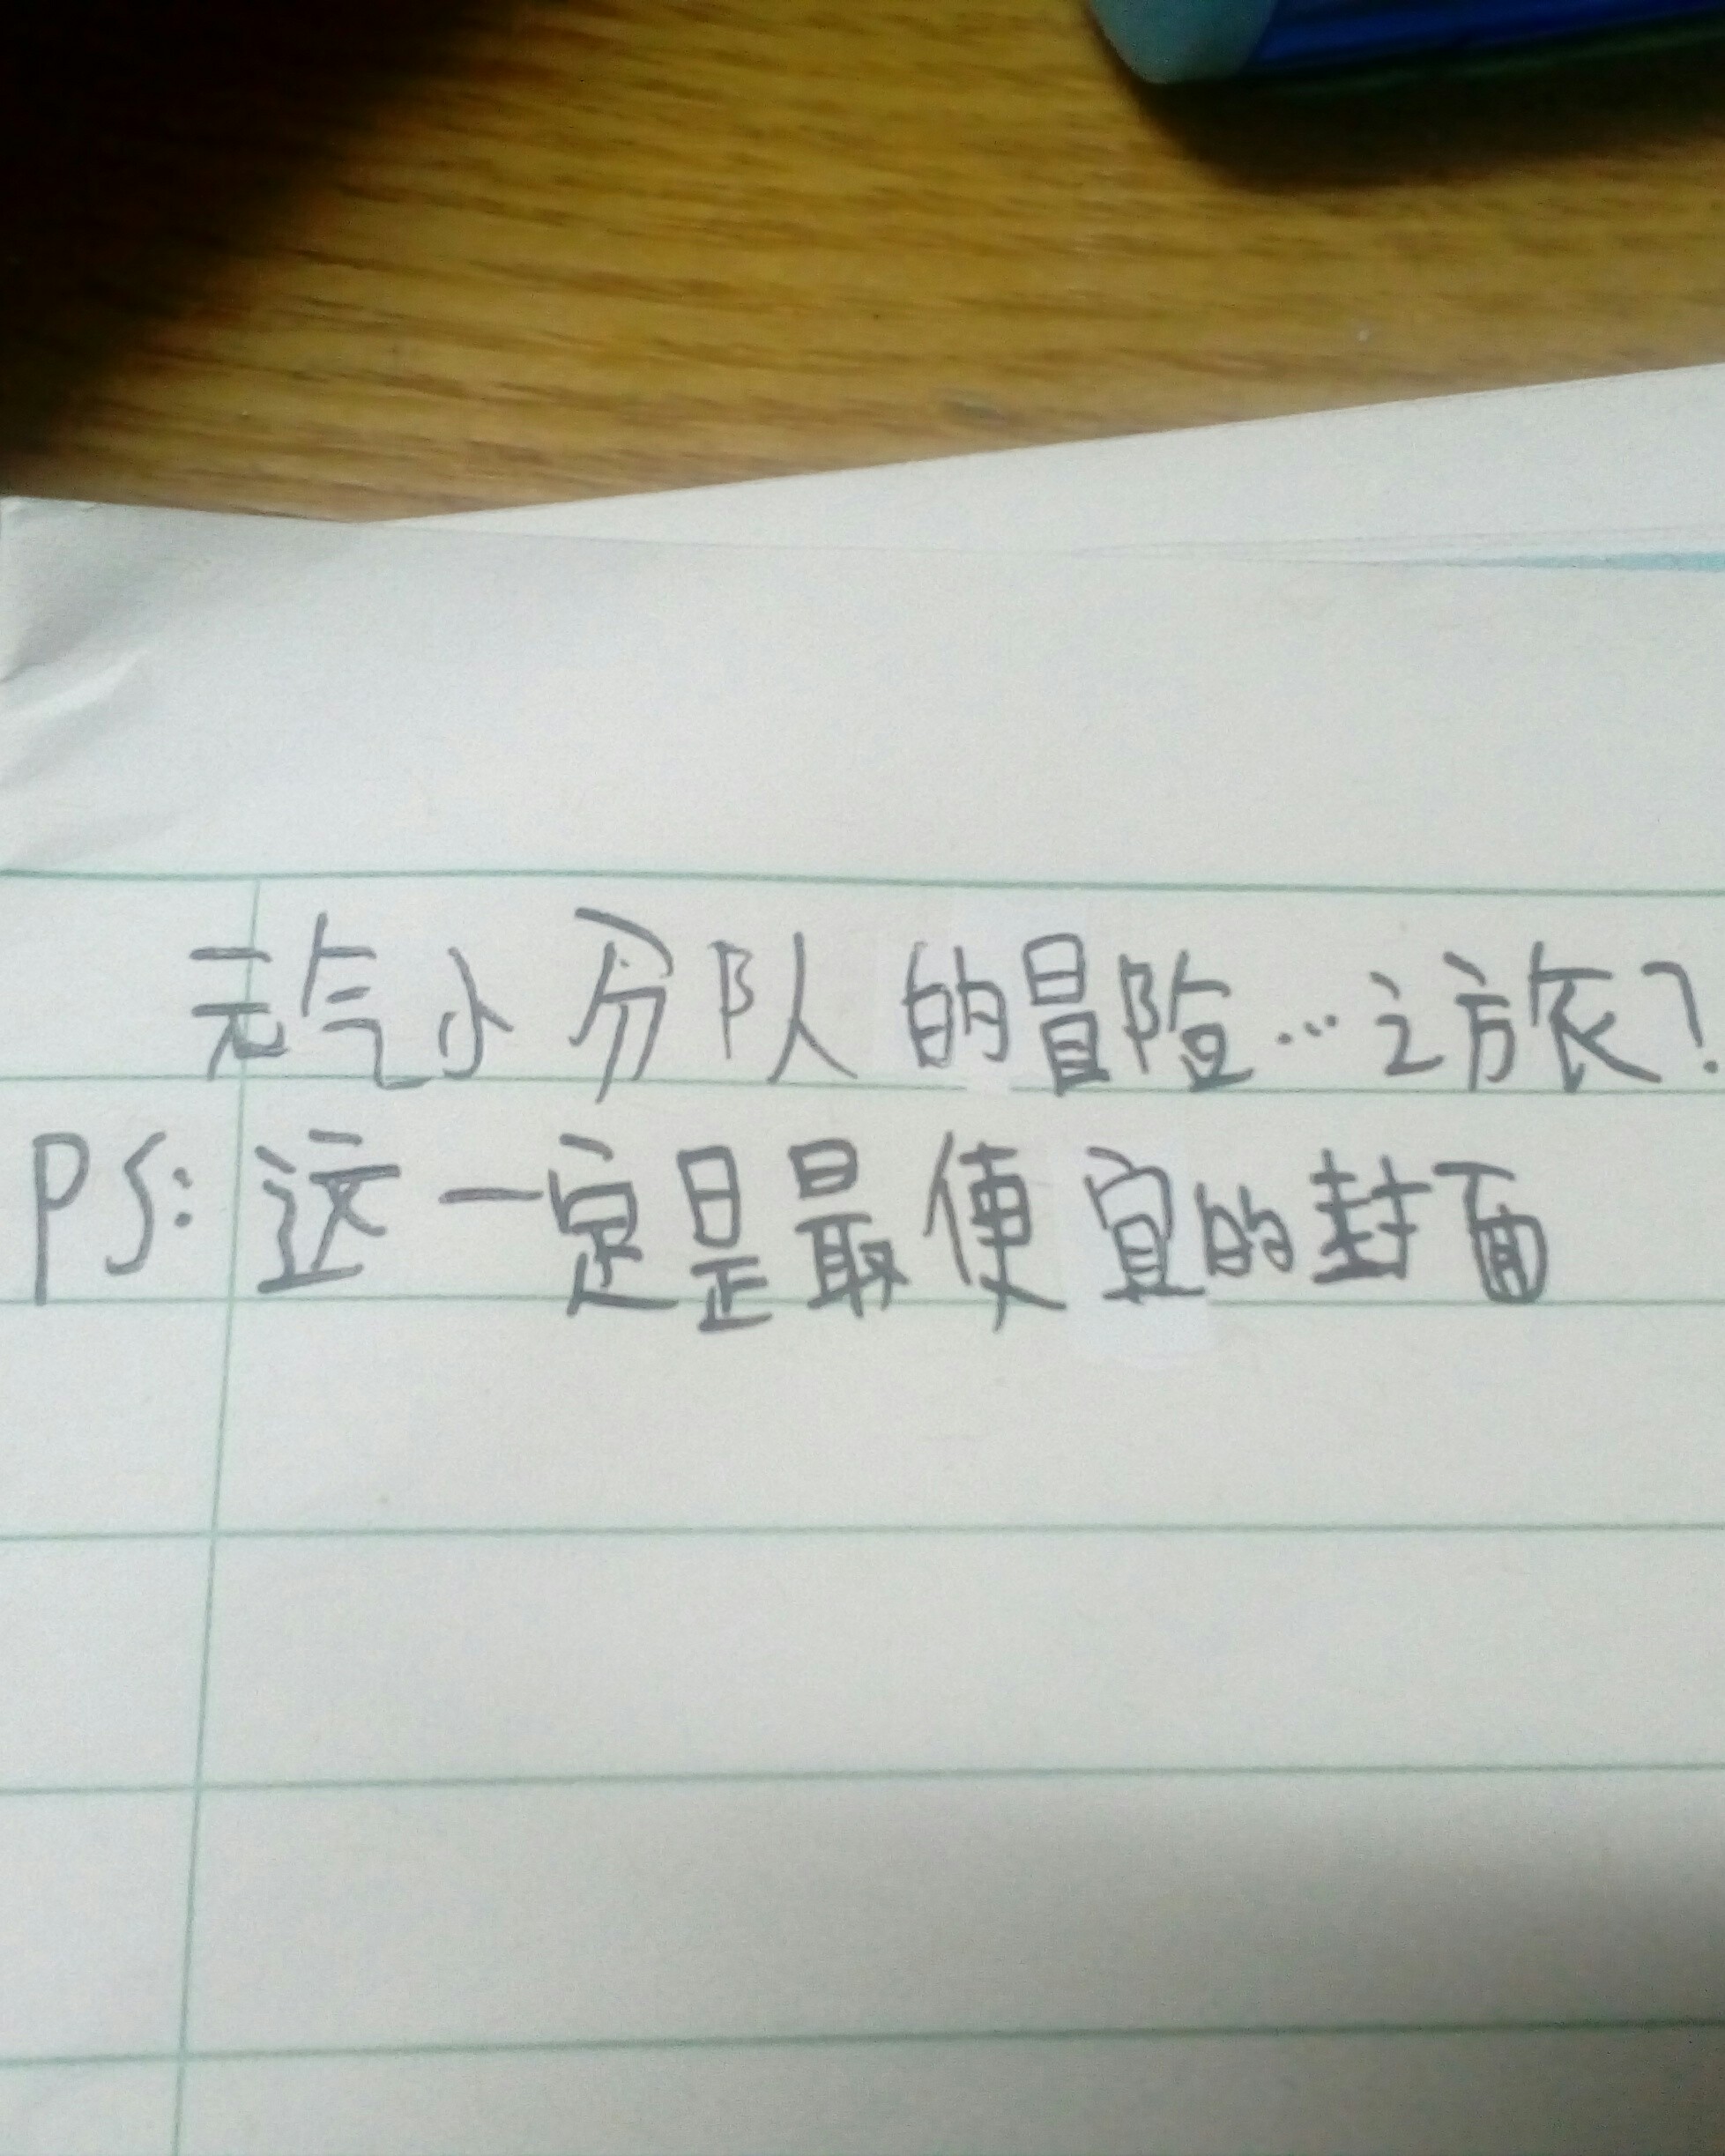 元气小分队的冒险…之旅？
PS：这一定是最便宜的封面